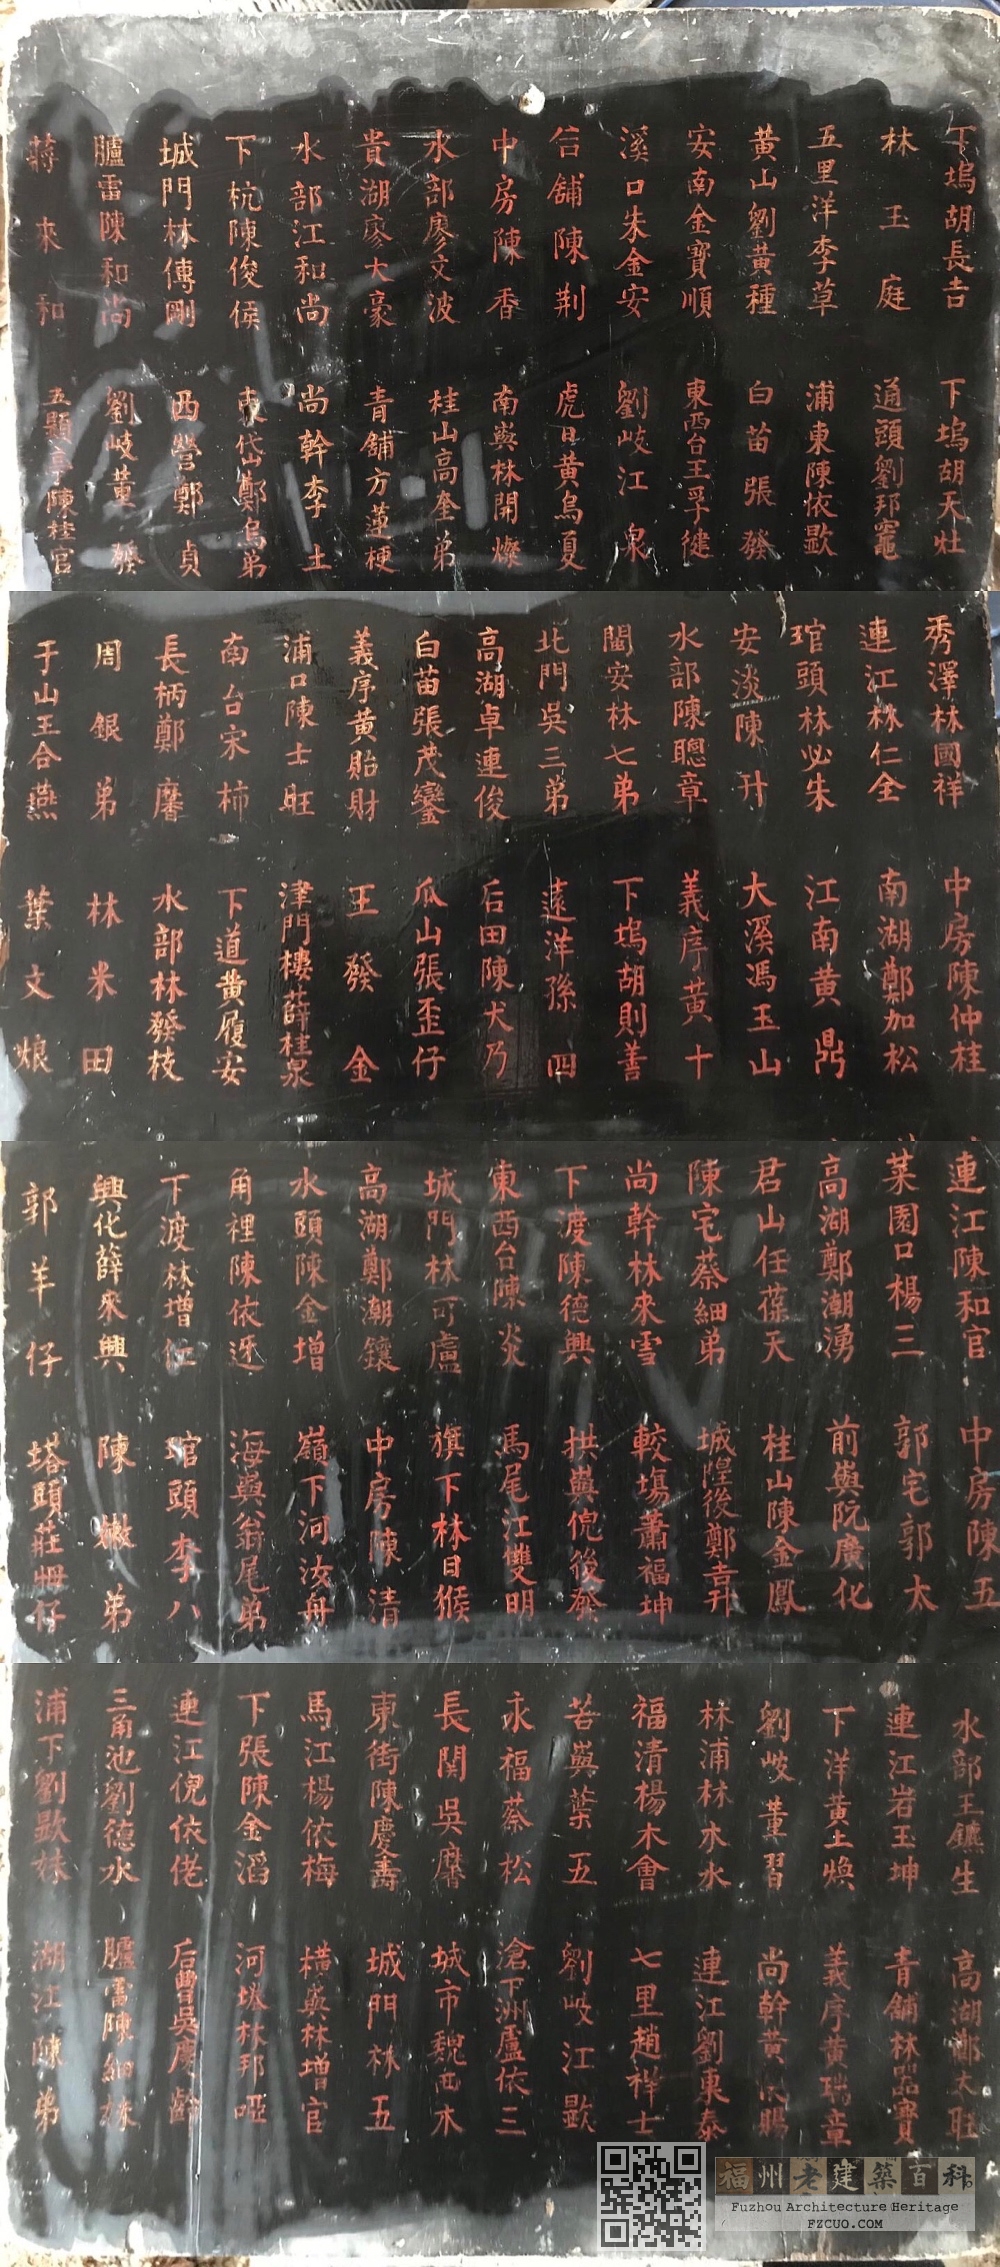 下塢胡長吉
林玉庭
五里洋李草
黃山劉黃種
安南金寶順
溪口朱金安
台舖陳荆
中房陳香
水部廖文波
貴湖廖大豪
水部江和尚
下杭陳俊侯
城門林傳剛
臚雷陳和尚
蔣來和
下塢胡天灶
通頭劉邦竈
浦東陳依歐
白苗張發
東西台王孚健
劉岐江泉
虎日黃烏夏
南與林開燦
桂山高奎弟
青舖方蓮梗
尚幹李土
東岱鄭烏弟
西營鄭貞
劉岐黃發
五顯亭陳桂官
秀澤林國祥
連江林仁全
琯頭林必朱
安淡陳升
水部陳聰章
閩安林七弟
北門吳三弟
高湖卓連俊
白苗張茂鑾
義序黃貽財
浦口陳士旺
南台宋柿
長柄鄭磨
周銀弟
于山王合燕
中房陳仲桂
南湖鄭加松
江南黃鼎
大溪馮玉山
義序黃十
下塢胡則善
遠洋孫四
后田陳犬乃
瓜山張歪仔
王發金
津門樓薛桂泉
下道黃履安
水部林發枝
林米田
葉文烺
連江陳和官
菜園口楊三
高湖鄭潮湧
君山任葆天
陳宅蔡細弟
尚幹林來雪
下渡陳德興
東西台陳炎
城門林可盧
高湖鄭潮鑲
水頭陳金增
角裡陳依迓
下渡林增仁
興化薛來興
郭羊仔
中房陳五
郭宅郭大
前與阮廣化
桂山陳金鳳
城隍後鄭吉升
較塲蕭福坤
拱與倪後發
馬尾江雙明
旗下林日猴
中房陳清
嶺下河汝舟
海與翁尾弟
琯頭李八
陳嫩弟
塔頭莊毋仔
水部王鑣生
連江岩玉坤
下洋黃上煥
劉岐董習
林浦林水水
福清楊木會
苔與葉五
永福蔡松
長関吳磨
東街陳慶壽
馬江楊依梅
下張陳金滔
連江倪依佬
三角池劉德水
浦下劉歐妹
高湖鄭大旺
青舖林品寶
義序黃瑞章
尚幹黃依賜
連江劉東泰
七里趙祥士
劉岐江歐
滄下洲盧依三
城市魏西木
城門林五
橫與林增官
河墘林邦啞
后曹吳慶齡
臚雷陳細妹
湖江陳弟
福州老建築百科
Fuzhou Architecture Heritage
FZCUO.COM